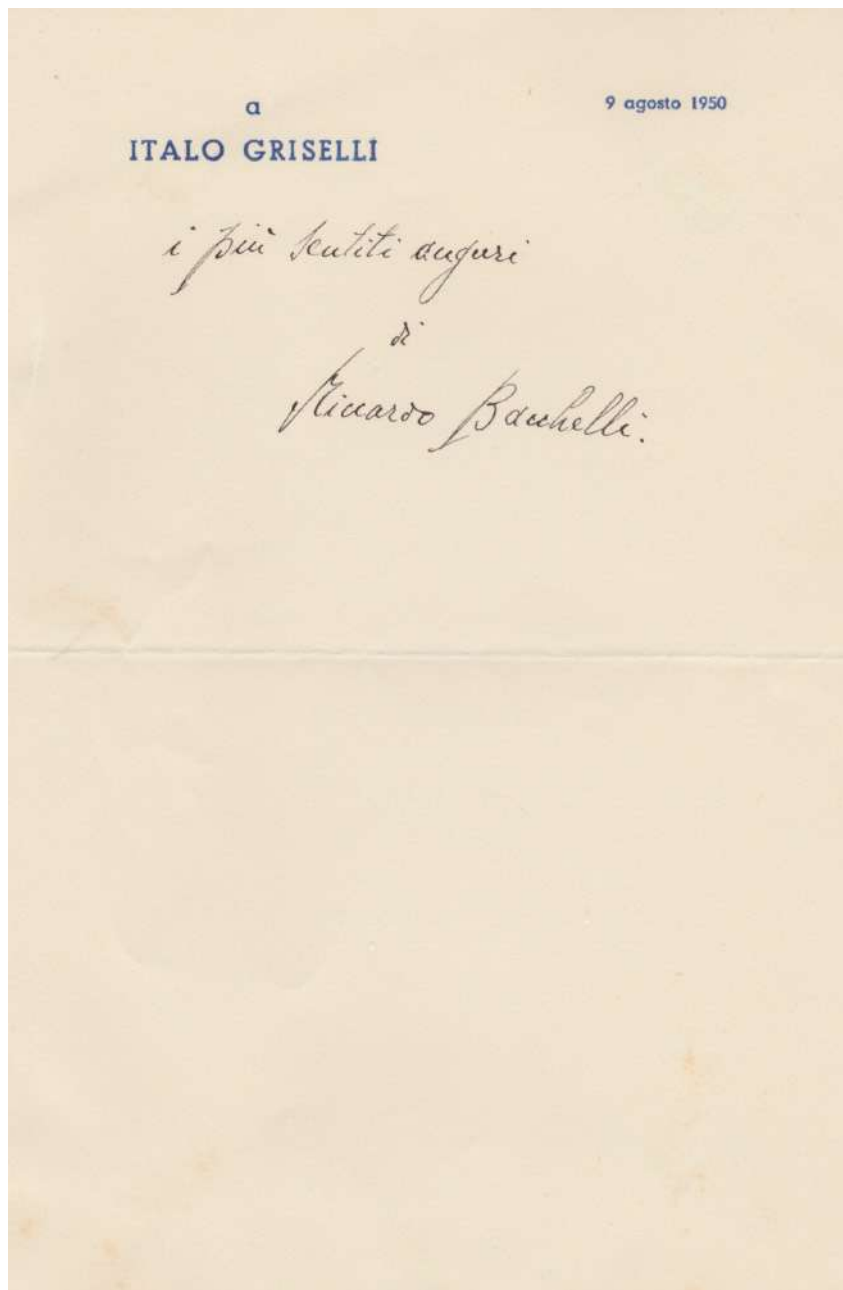 a
ITALO GRISELLI
9 agosto 1950
i più sentiti auguri
di
Riccardo Bacchelli.